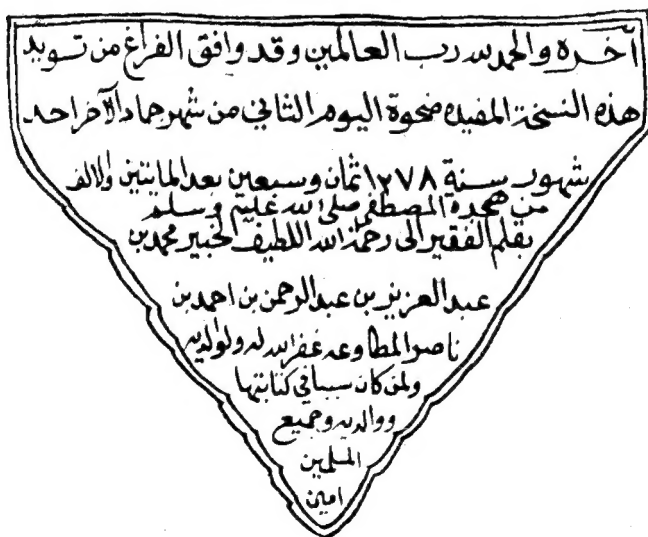 آخره والحمد لله رب العالمين وقد وافق الفراغ من تسويد
هذه النسخة المفيده ضحوة اليوم الثاني من شهر جماد الآخر احد
شهور سنة ١٢٧٨ ثمان وسبعين بعد المائتين والالف
من هجرة المصطفى صلى الله عليه وسلم
بقلم الفقير الى رحمة الله اللطيف الخبير محمد بن
عبد العزيز بن عبد الرحمن بن احمد بن
ناصر المطاوعه غفر الله له ولوالديه
ولمن كان سببا في كتابتها
ووالديه وجميع
المسلمين
امين